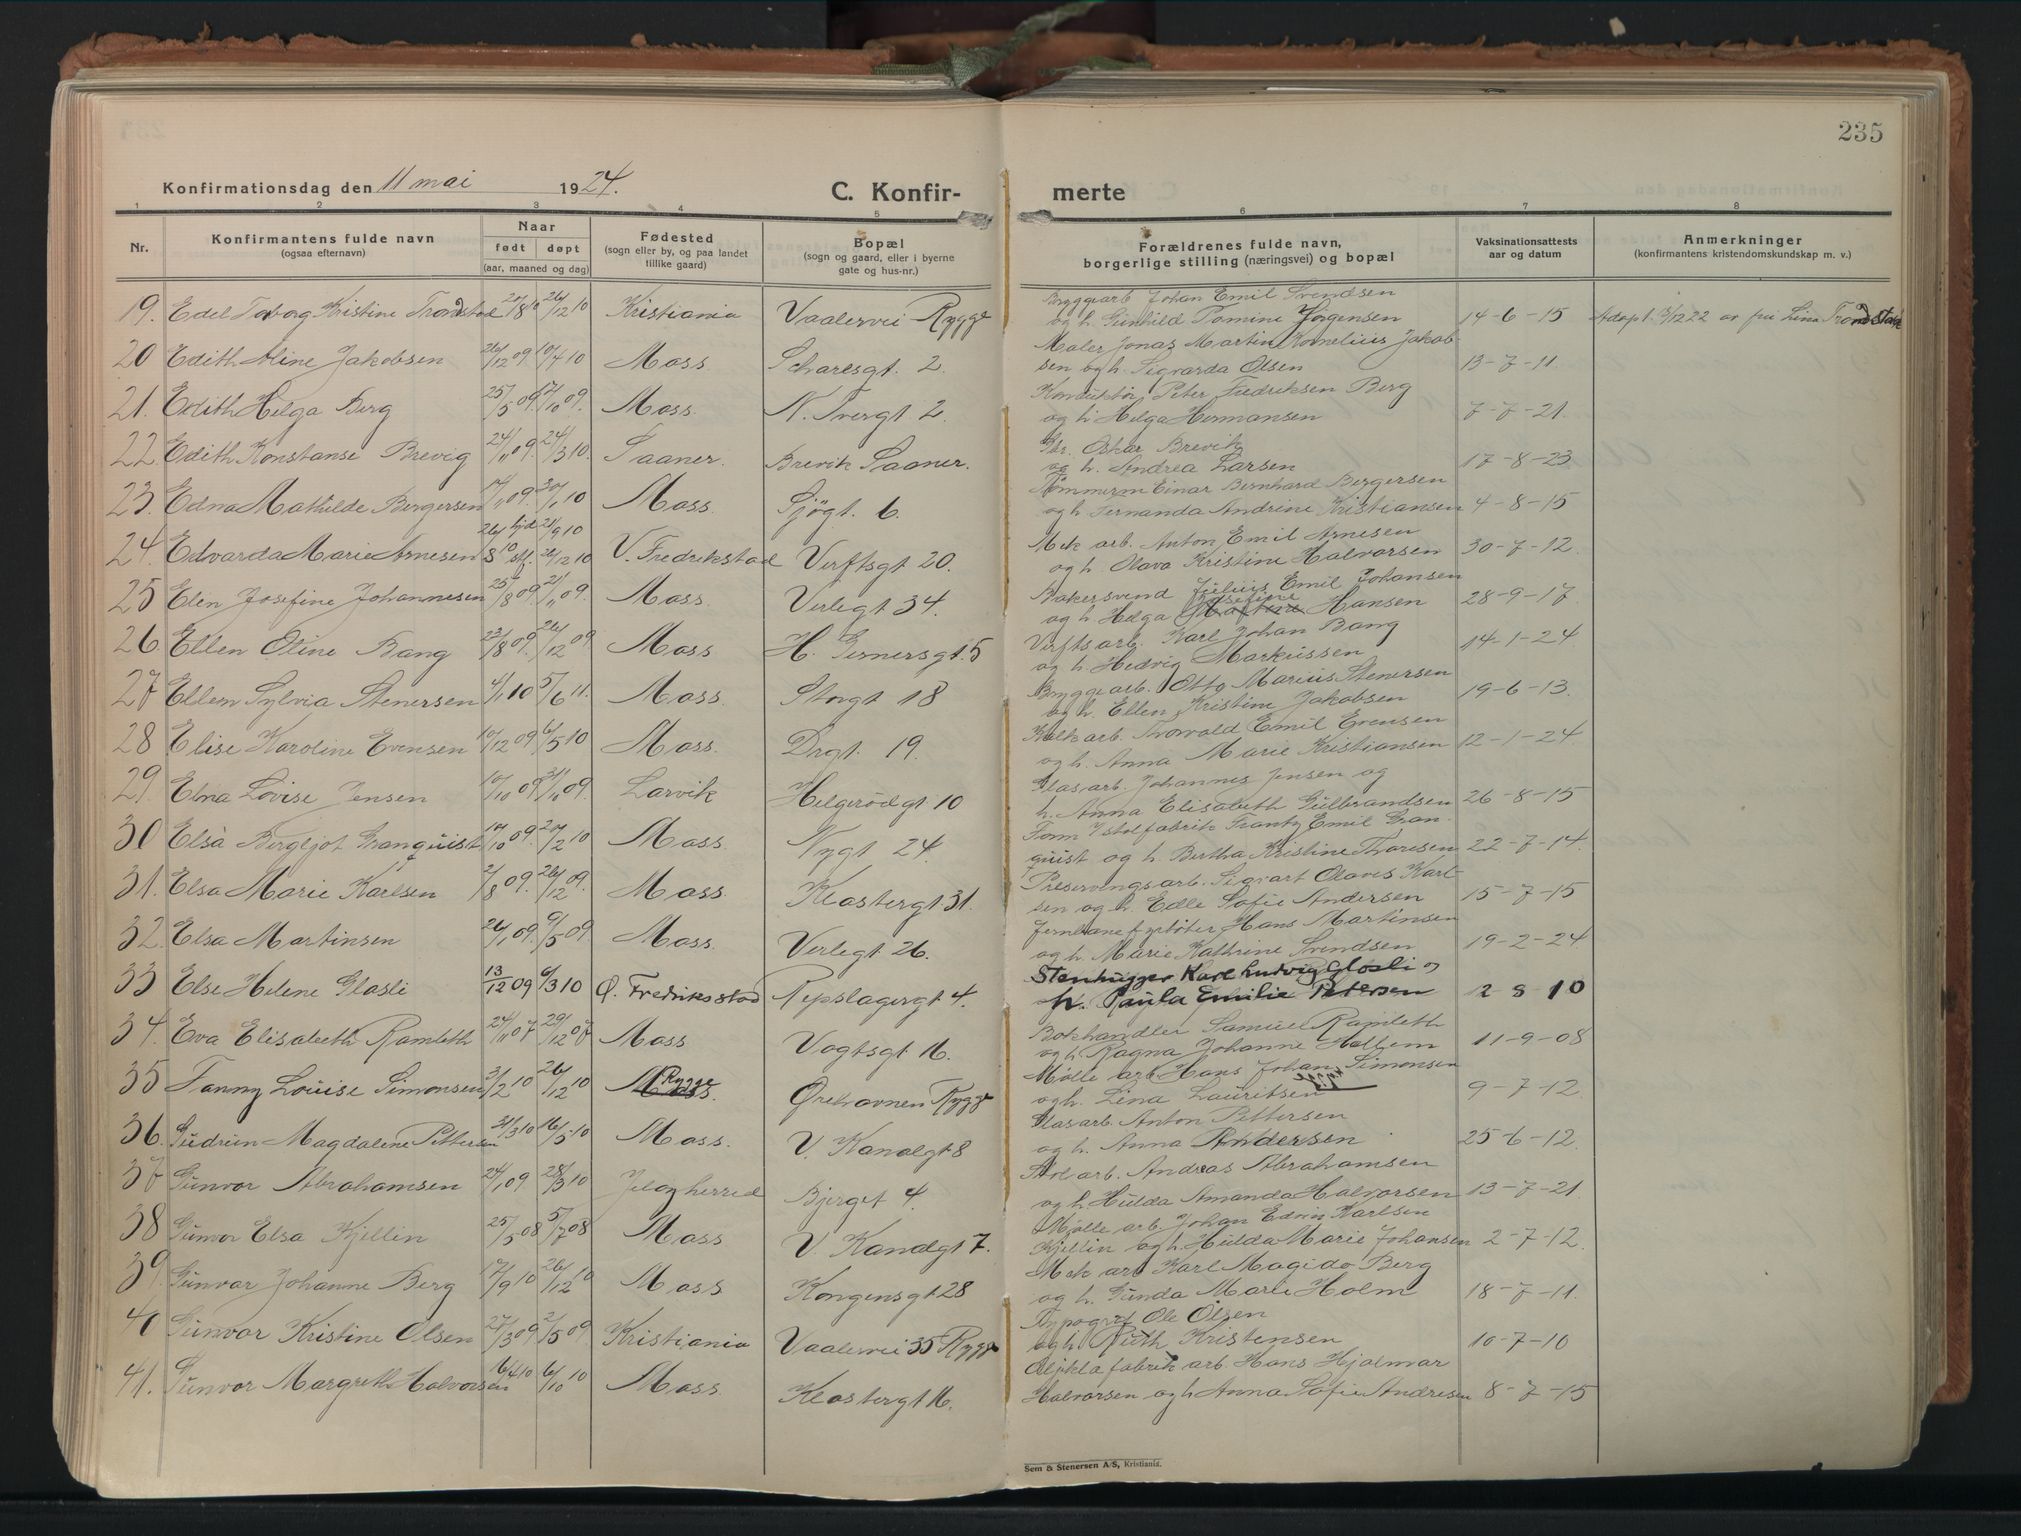 235
Konfirmationsdag den 11 mai 1924.
C. Konfir-
merte
1 2 3 4 5 6 7 8
Nr.
Konfirmantens fulde navn
(ogsaa efternavn)
Naar
født døpt
(aar, maaned og dag)
Fødested
(sogn eller by, og paa landet
tillike gaard)
Bopæl
(sogn og gaard, eller i byerne
gate og hus-nr.)
Forældrenes fulde navn,
borgerlige stilling (næringsvei) og bopæl
Vaksinationsattests
aar og datum
Anmerkninger
(konfirmantens kristendomskundskap m. v.)
19. Edel Kristine Kristiania Vaalervei Rygge
Bryggearb. Johan Emil Svendsen
og h. Gunhild Jørgensen 14-6-15
20 Edith Aline Jakobsen 26/12 09. 10/4 10 Moss. Scharesgt. 2.
Maler Jonas Martin Kornelius Jakob-
sen og h. Sigvarda Olsen 13-7-11.
21. Edith Helga Berg 25/5 09. 17/10 09. Moss. N. Tvergt 2.
Konduktør Peter Fredriksen Berg
og h. Helga Hermansen 7-7-21.
22. Edith Konstanse Brevig 24/11 09. 24/3 10. Saaner. Brevik Saaner.
Oskar Brevik
og h. Andrea Larsen 17-8-23
23. Edna Mathilde Bergersen Moss. Sjøgt. 6.
Tømmerm Einar Bernhard Bergersen
og h. Fernanda Andrine Kristiansen 4-8-15
24. Edvarda Marie Arnesen V. Fredrikstad Verftsgt 20.
Mek arb. Anton Emil Arnesen
og h. Olava Kristine Halvorsen 30-7-12.
25 Elin Josefine Johannesen 25/8 09. 21/11 09. Moss. Verlegt 34.
Bakersvend Julius Emil Johansen
og h. Helga Josefine Hansen 28-9-17.
26. Ellen Oline Bang 23/8 09. 26/12 09. Moss H. Gernersgt. 5
Verftsarb. Karl Johan Bang
og h. Hedvig Markussen 14-1-24
27 Ellen Sylvia Stenersen 4/1 10 5/6 11. Moss. Storgt 18
Bryggearb. Otto Marius Stenersen
og h. Ellen Kristine Jakobsen 19-6-13.
28 Elise Karoline Evensen 10/12 09 6/5 10 Moss. Drgt. 19.
Kalkarb. Thorvald Emil Evensen
og h. Anna Marie Kristiansen 12-1-24.
29. Elna Lovise Jensen 10/10 09 31/10 09. Larvik Helgerødgt 10
Glasarb. Johannes Jensen og
h. Anna Elisabeth Gulbrandsen 26-8-15
30 Elsa Bergljot Granquist Moss. Nygt 24.
Emil Gran-
quist og h. Bertha Kristine Thoresen 22-7-14.
31. Elsa Marie Karlsen 2/8 09. 26/12 09. Moss. Klostergt. 31.
Preservingsarb. Sigvart Olavus Karl-
sen og h. Edle Sofie Andersen 15-7-15
32. Elsa Martinsen 26/1 09. 9/5 09. Moss. Verlegt 26.
Hans Martinsen
og h. Marie Kathrine Svendsen 19-2-24
33 Else Helene Glosli 13/12 09 6/3 10 Ø. Fredriksstad Repslagergt 4.
Stenhugger Karl Ludvig Glosli og
h. Paula Emilie Petersen 2 8 10
34. Eva Elisabeth Ramleth 24/11 07 29/12 07 Moss Vogtsgt 16.
Bokhandler Samuel Ramleth
og h. Ragna Johanne Hallem 11-9-08
35 Fanny Louise Simonsen 21/2 10 26/12 10 Moss. Rygge Ørehavnen Rygge
Mølle arb. Hans Johan Simonsen
og h. Lina Lauritsen 9-7-12.
36. Gudrun Magdalene Pettersen 31/3 10 16/5 10 Moss. V. Kanalgt 8
Glasarb. Anton Pettersen
og h. Anna Andersen 25-6-12.
37 Gunvor Abrahamsen 24/1 09 28/3 10 Jeløy herred Bjerget 4.
arb. Andreas Abrahamsen
og h. Hulda Amanda Halvorsen 13-7-21
38 Gunvor Elsa Kjellin 25/5 08 5/7 08 Moss V. Kanalgt 7.
Mølle arb. Johan Edvin Karlsen
Kjellin og h. Hulda Marie Johansen 2-7-12.
39. Gunvor Johanne Berg 17/9 10 26/12 10 Moss Kongensgt 28
Mek arb Karl Berg
og h. Gunda Marie Holm 18-7-11.
40 Gunvor Kristine Olsen 27/3 09 2/5 09 Kristiania Vaalervei 35 Rygge
Typograf Ole Olsen
og h. Ruth Kristensen 10-7-10
41. Gunvor Margreth Halvorsen 6/4 10 6/10 10 Moss. Klostergt 16.
fabrik arb. Hans Hjalmar
Halvorsen og h. Anna Sofie Andresen 8-7-15
Sem & Stenersen A/S, Kristiania.